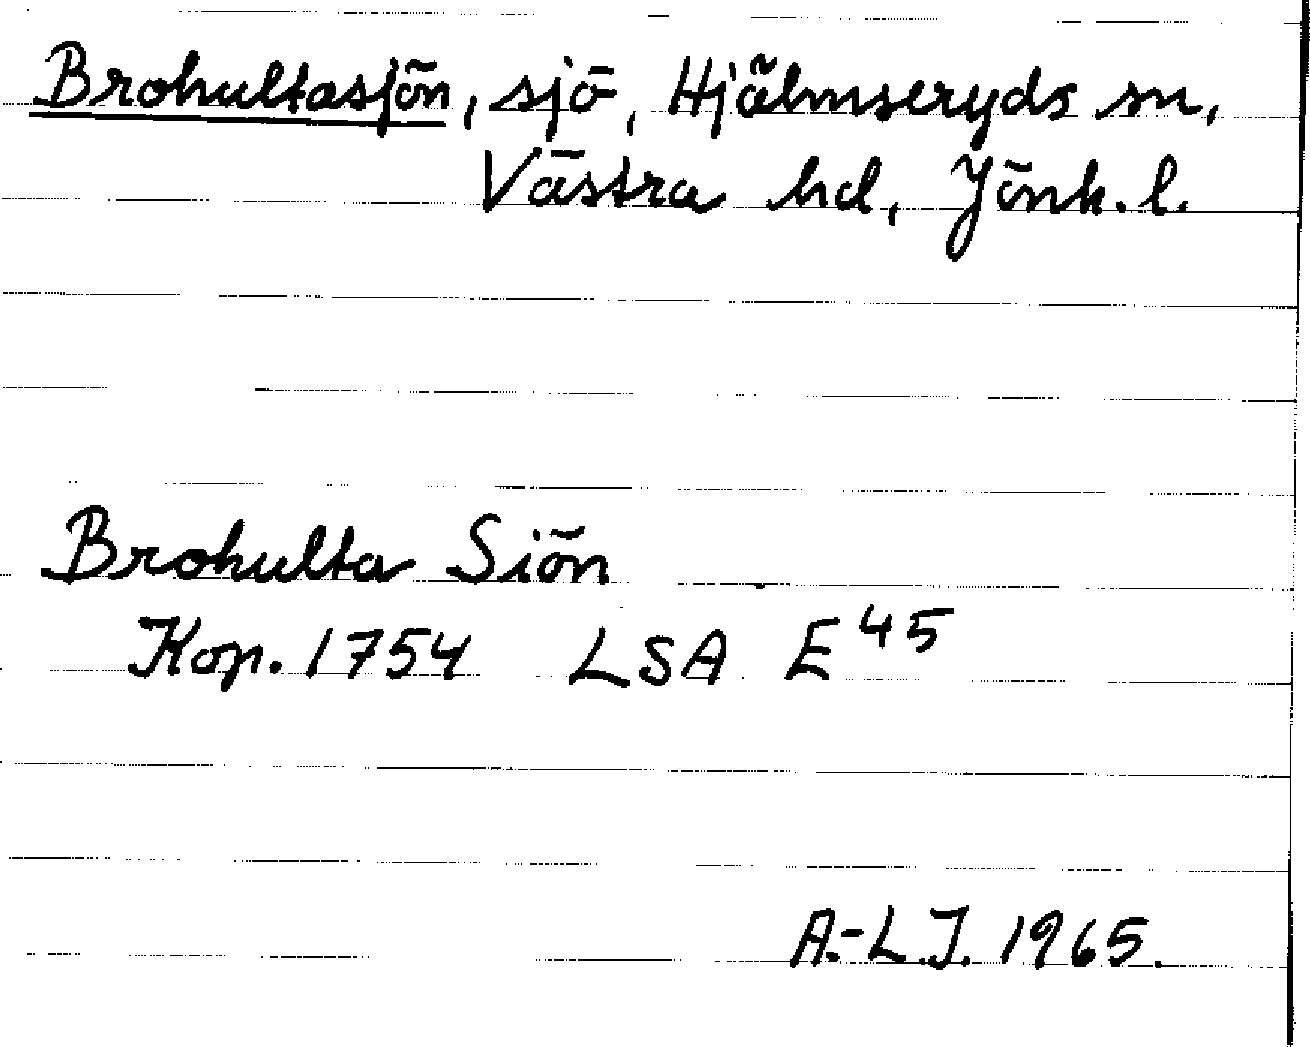 Brohultasjön, sjö, Hjälmseryds sn,
Västra hd, Jönk. l.
Brohulta Siön
Kop. 1754 LSA E 45
A.-L.J. 1965.